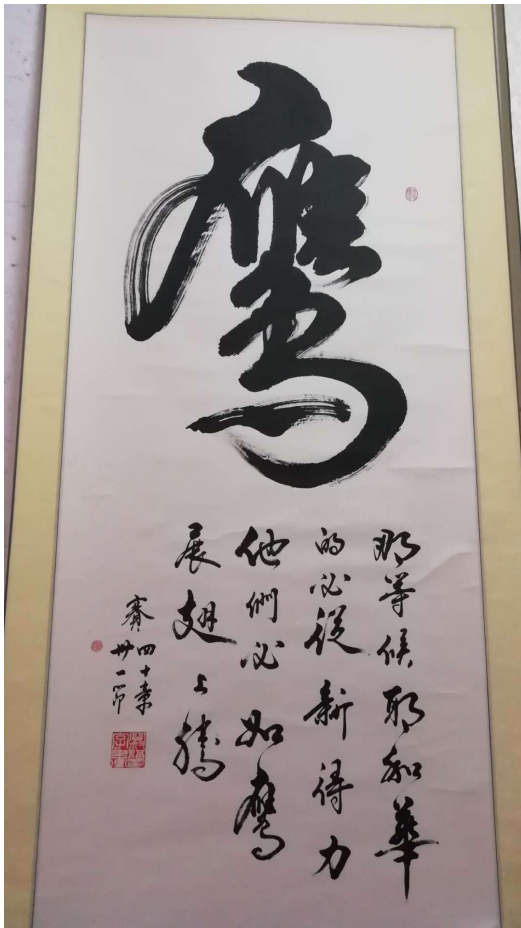 鹰
那等候耶和華
的必從新得力
他們必如鷹
展翅上騰
賽四十章
卅一節